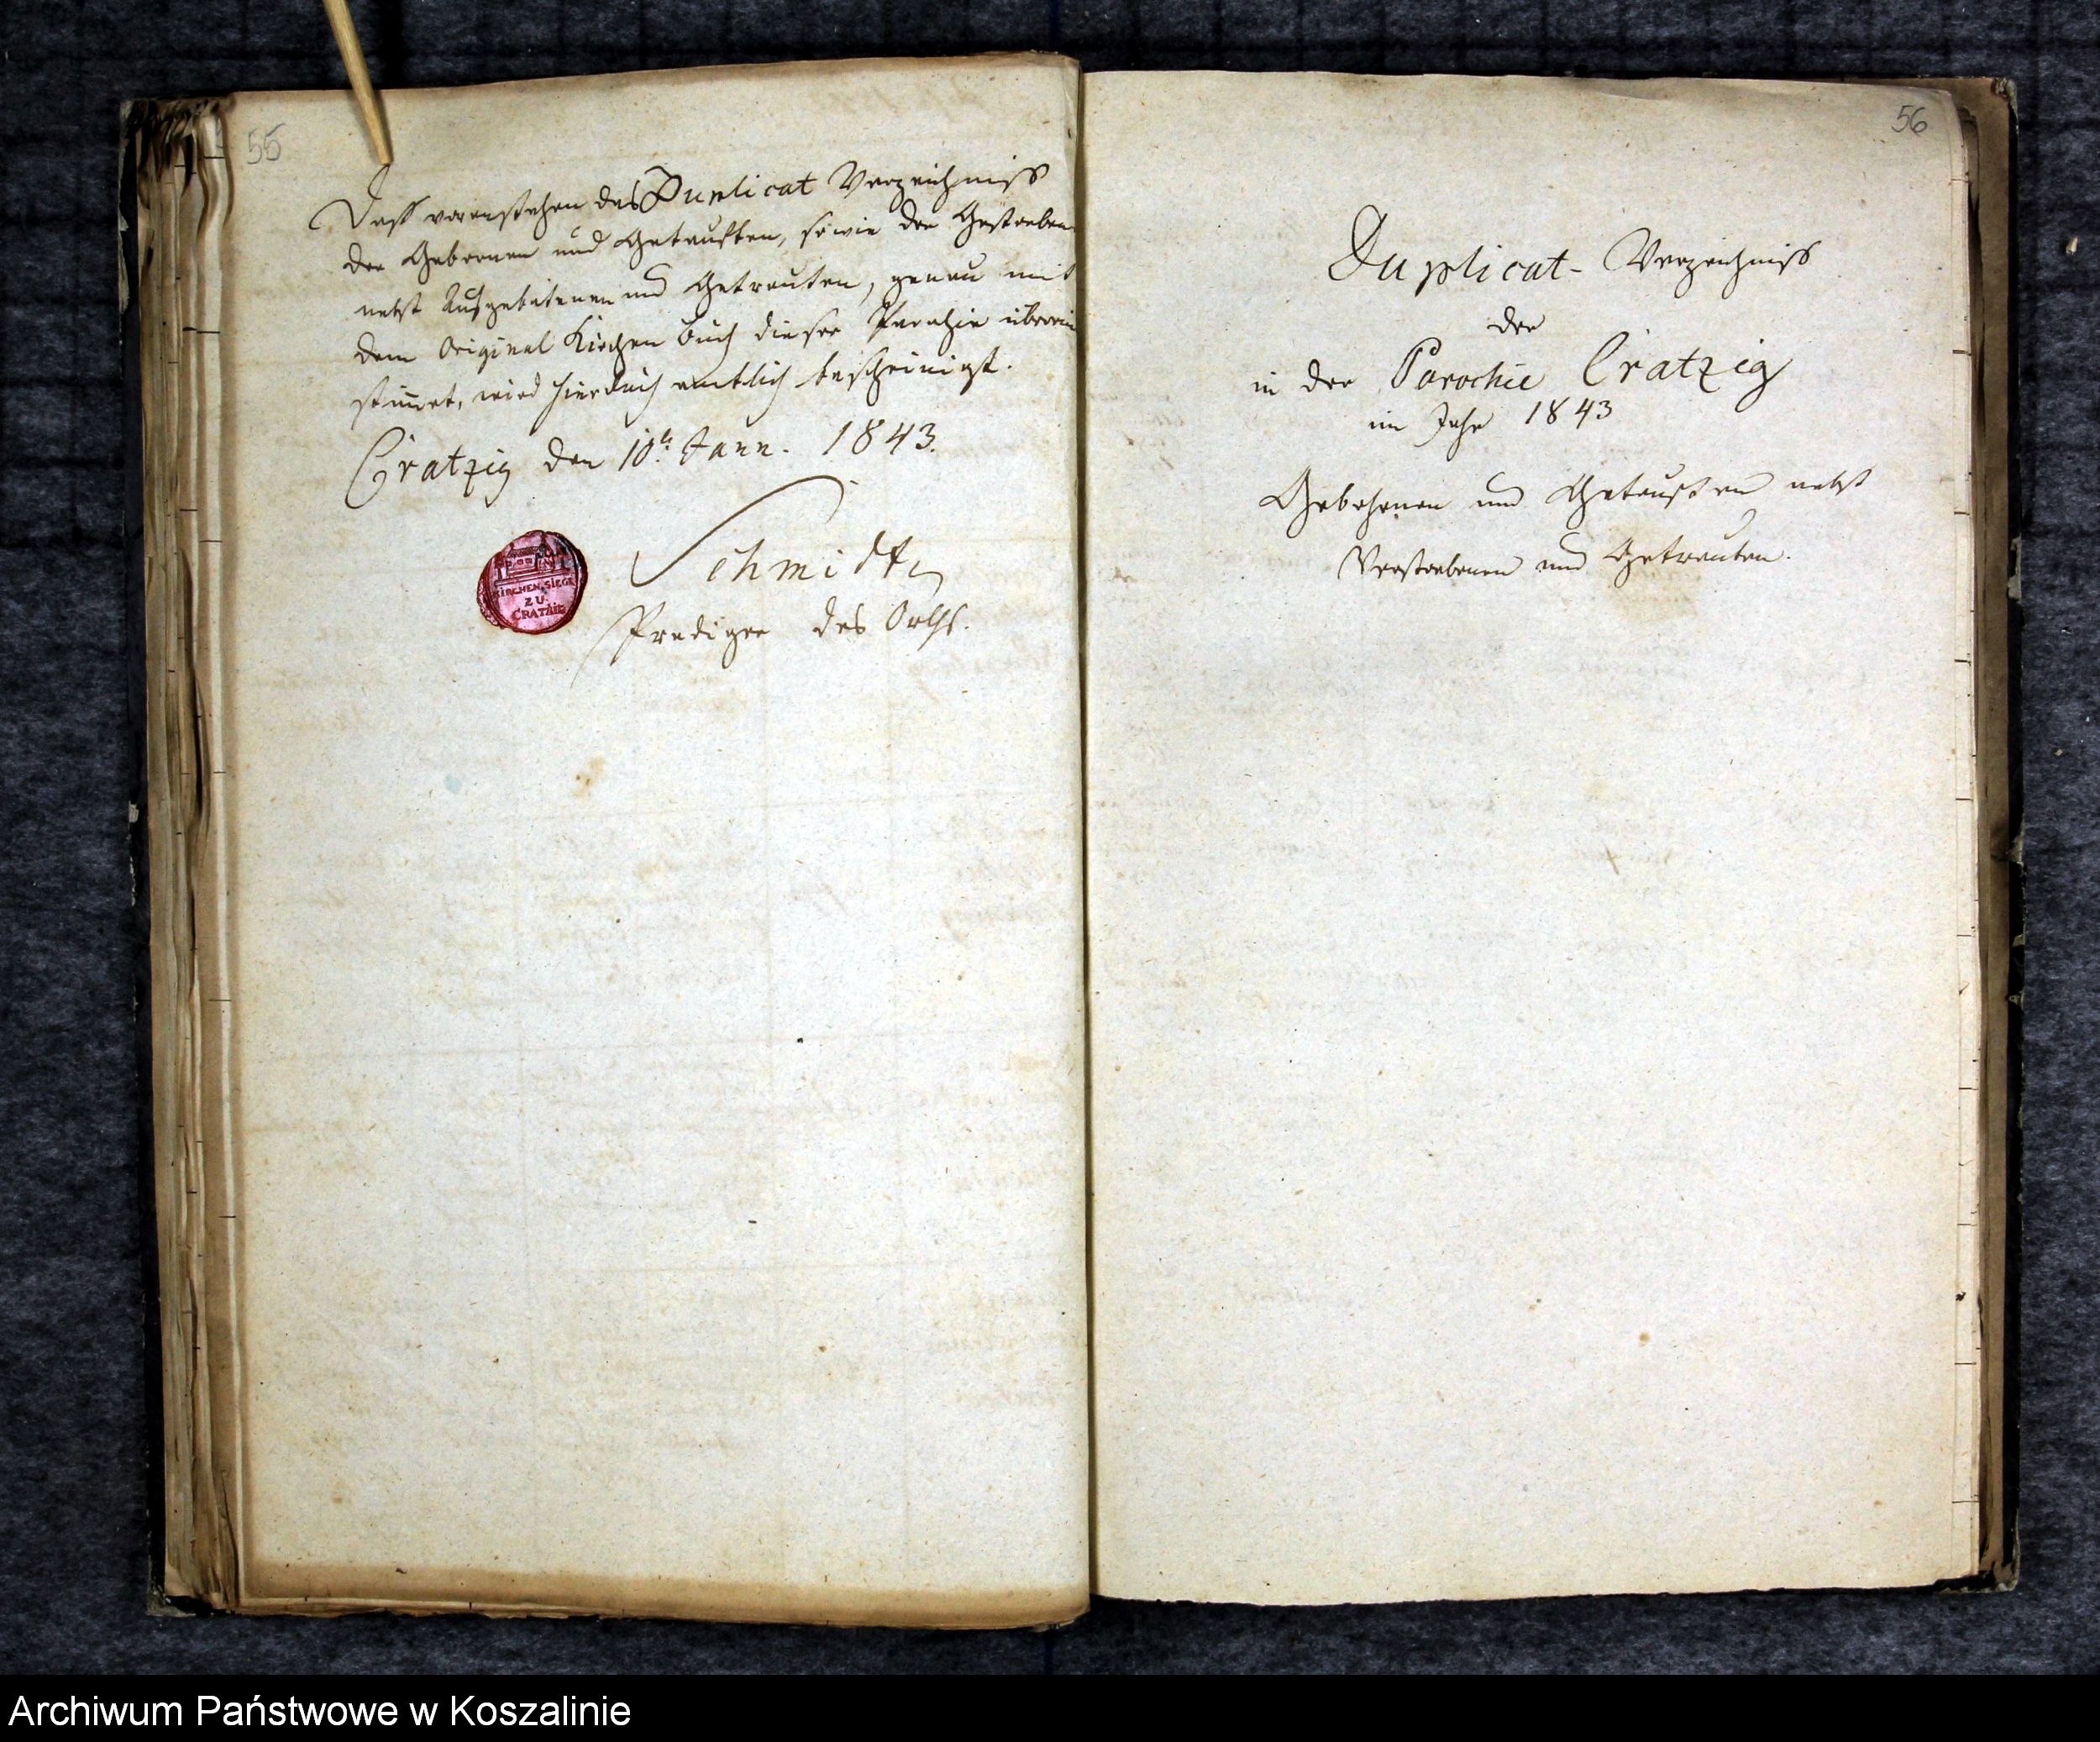 55
Dass vorenstehendes Duplicat Verzeichniss
der Gebornen und Getauften, sowie der Gestorben
nebst Aufgebotenen und Getrauten, genau mit
dem Original Kirchen buch dieser Parochie überein
stimmt, wird hierdurch amtlich bescheinigt.
Cratzig den 10t Jann. 1843.
KIRCHEN SIEGEL
ZU
CRATZIG
Schmidt,
Prediger des Orts.
56
Duplicat- Verzeichniss
der
in der Parochie Cratzig
im Jahr 1843
Gebohrnen und Getauften nebst
Verstorbenen und Getrauten.
Archiwum Państwowe w Koszalinie